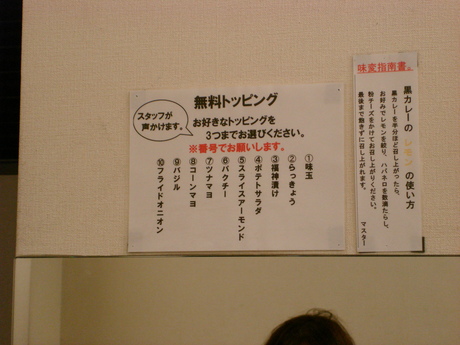 無料トッピング
スタッフが
声かけます。
お好きなトッピングを
3つまでお選びください。
※番号でお願いします。
①味玉
②らっきょう
③福神漬け
④ポテトサラダ
⑤スライスアーモンド
⑥パクチー
⑦ツナマヨ
⑧コーンマヨ
⑨バジル
⑩フライドオニオン
味変指南書。
黒カレーのレモンの使い方
黒カレーを半分ほど召し上がったら、
お好みでレモンを絞り、ハバネロを数滴たらし、
粉チーズをかけてお召し上がりください。
最後まで飽きずに召し上がれます。
マスター